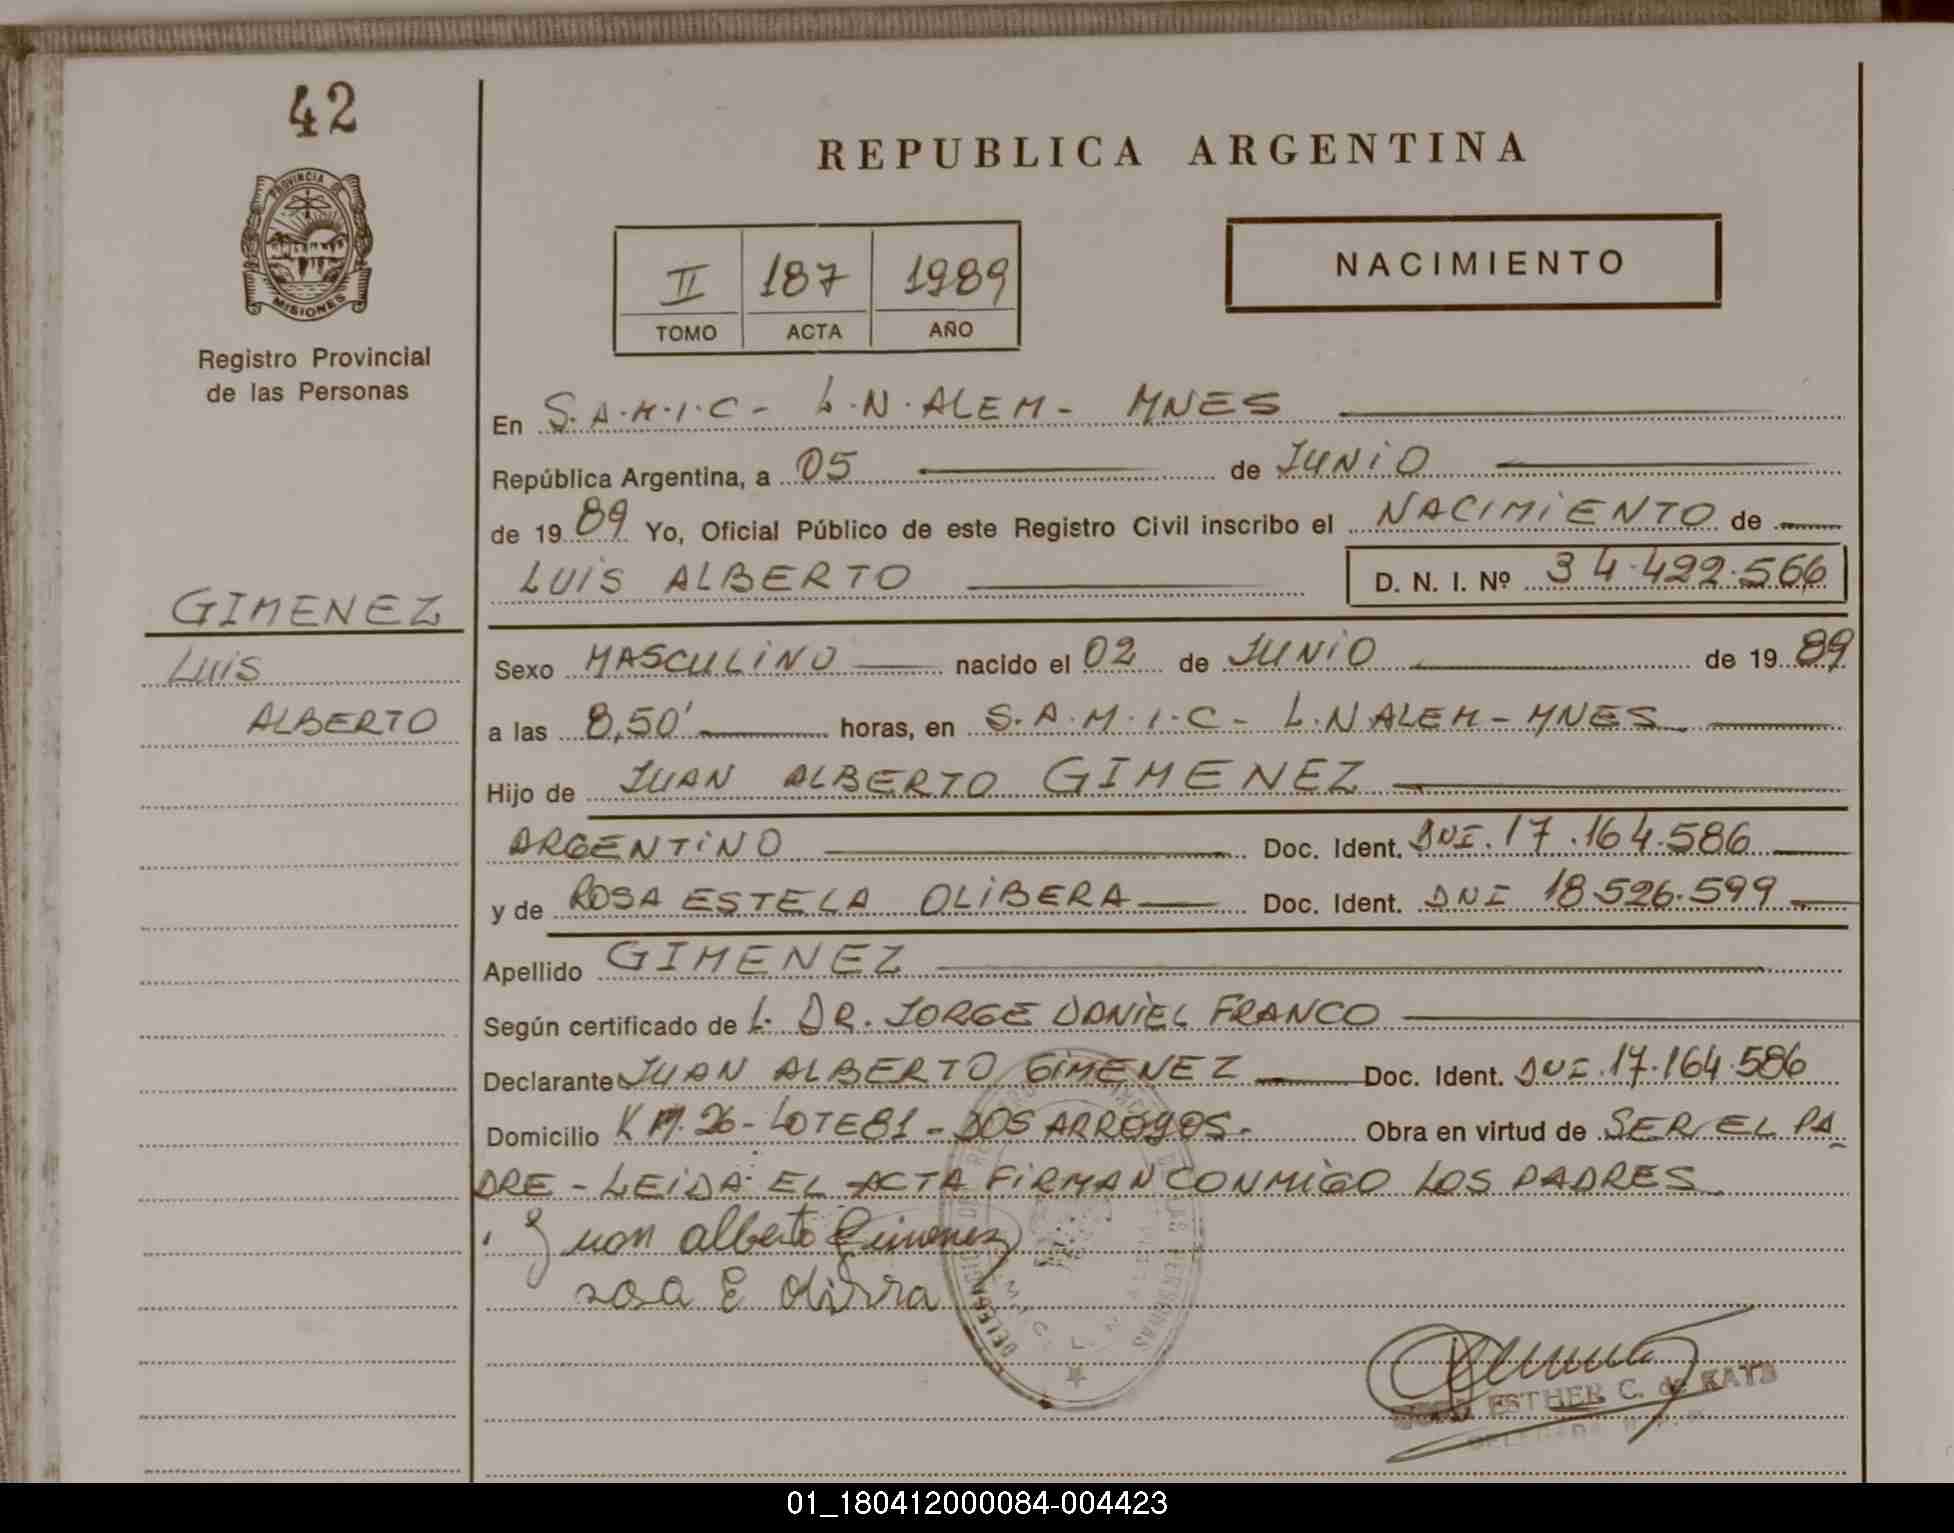 42
PROVINCIA DE
MISIONES
Registro Provincial
de las Personas
GIMENEZ
LUIS
ALBERTO
REPUBLICA ARGENTINA
II 187 1989
TOMO ACTA AÑO
NACIMIENTO
En S.A.M.I.C- L.N.ALEM- MNES
República Argentina, a 05 de JUNIO
de 19 89 Yo, Oficial Público de este Registro Civil inscribo el NACIMIENTO de
LUIS ALBERTO D. N. I. Nº 34.422.566
Sexo MASCULINO nacido el 02 de JUNIO de 19 89
a las 8,50' horas, en S.A.M.I.C- L.N ALEM- MNES
Hijo de JUAN ALBERTO GIMENEZ
ARGENTINO Doc. Ident. DNI.17.164.586
y de ROSA ESTELA OLIBERA Doc. Ident. DNI 18.526.599
Apellido GIMENEZ
Según certificado de L. DR. JORGE DANIEL FRANCO
Declarante JUAN ALBERTO GIMENEZ Doc. Ident. DNI.17.164.586
Domicilio KM.26- LOTE81- DOS ARROYOS. Obra en virtud de SER EL PA
DRE - LEIDA EL ACTA FIRMAN CONMIGO LOS PADRES
Juan alberto Gimenez
rosa E
ESTHER C. de KATZ
DELEGADA
01_180412000084-004423